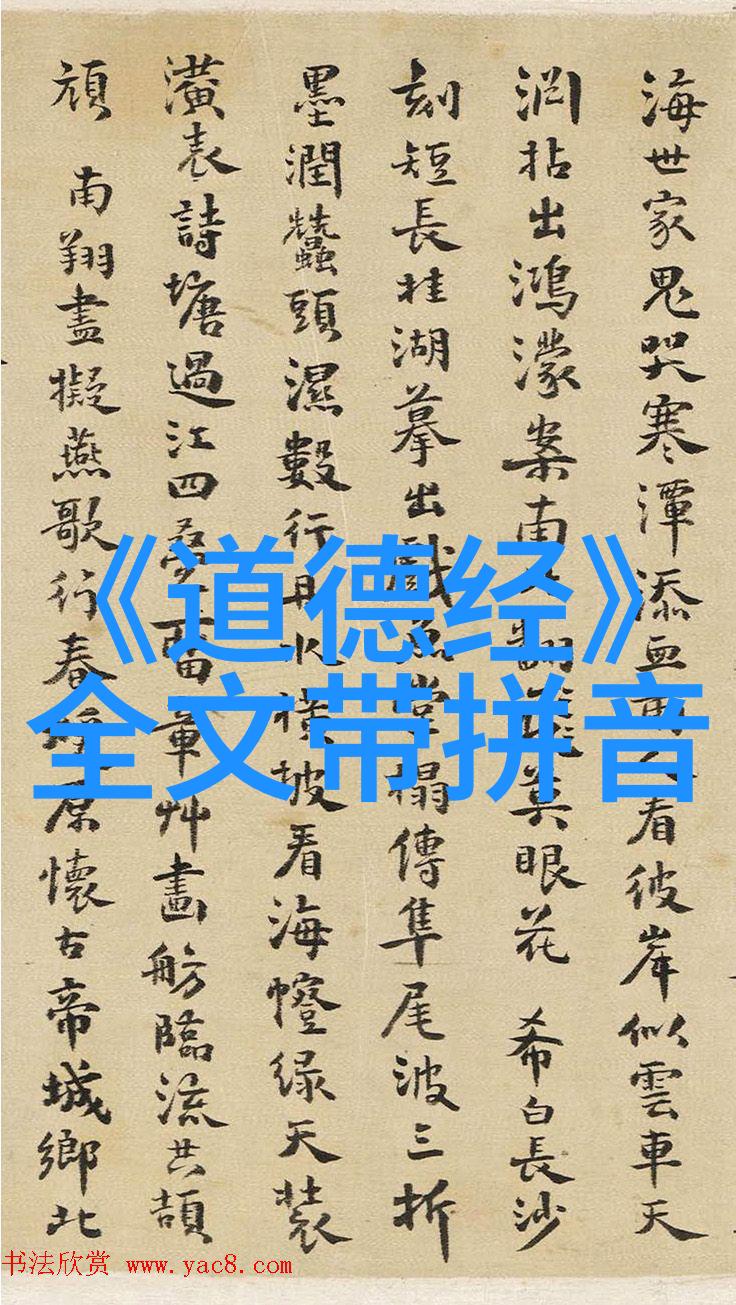 海世家鬼哭寒潭添血看彼岸似雲車天
洞拈出鴻濛案南翻莫眼花 希白長沙
刻短長桂湖摹出戲魚堂榻傳隼尾波三折
墨潤蠶頭濕數行丹水橫披看海幢綠天裝
潢表詩塘過江四章艸畫舫臨流共頡
頏 南翔盡擬燕歌行春原懷古帝城鄉北
《道德经》
全文带拼音
书法欣赏 www.yac8.com